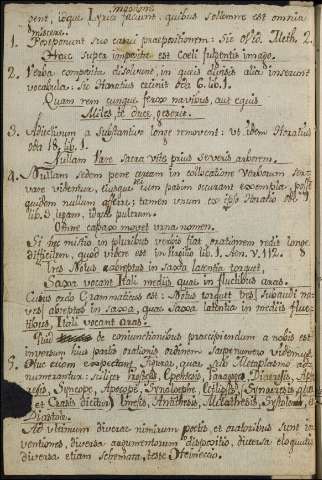 impositione
dent, ijque Lyrici faciunt, quibus solemne est omnia
miscere.
1. Postponunt suo casui praepositionem: Sic Ovid. Meth. 2.
Haec super imposita est Coeli fulgentis imago.
2. Verba composita dissolvunt, in queis divisis alia inserunt
vocabula: sic Horatius cecinit Oda 6. lib. 1.
Quam rem cunque ferox navibus, aut equis
Miles, te duce, gesserit.
3. Adjectivum a substantivo longe removent: ut idem Horatius
oda 18. lib. 1.
Nullam Vare sacra vite prius severis arborem.
4. Nullam sedem pene certam in collocatione verborum ser-
vare videntur, cujusque rei cum passim occurant exempla, possit
quidem nullum afferre; tamen unum ex ipso Horatio ode
lib. 3. legam, idque pulcrum.
Omne capax movet urna nomen.
Si hic mistio in pluribus verbis fiat, orationem redit longe
difficilem, quod videre est in Virgilio lib. 1. Aen. v. 112.
Tres Notus abreptas in saxa latentia torquet,
Saxa vocant Itali mediis quae in fluctibus aras.
Cujus ordo Grammaticus est: Notus torquet tres [subaudi na-
ves] abreptas in saxa, quae saxa latentia in mediis fluc-
tibus, Itali vocant aras.
Quid de conjunctionibus praecipiendum a nobis est
inversum hujus partis orationis ordinem saepenumero videmus.
5. Huc etiam expectant, figurae, quae sub Metaplasmo an-
numerantur: scilicet Prothesis, Epenthesis, Paragoge, Diaeresis, Aphae-
resis, Syncope, Apocope, Synaloephe, Ecthlipsis, [Synaeresis quae
et Crasis dicitur] Tmesis, Antithesis, Metathesis, Systole, et
Diastole.
Ad ultimum diversae nimirum poetis et oratoribus sunt in-
ventiones, diversa argumentorum dispositio, diversa eloquutio
diversa etiam schemata, teste Heineccio.